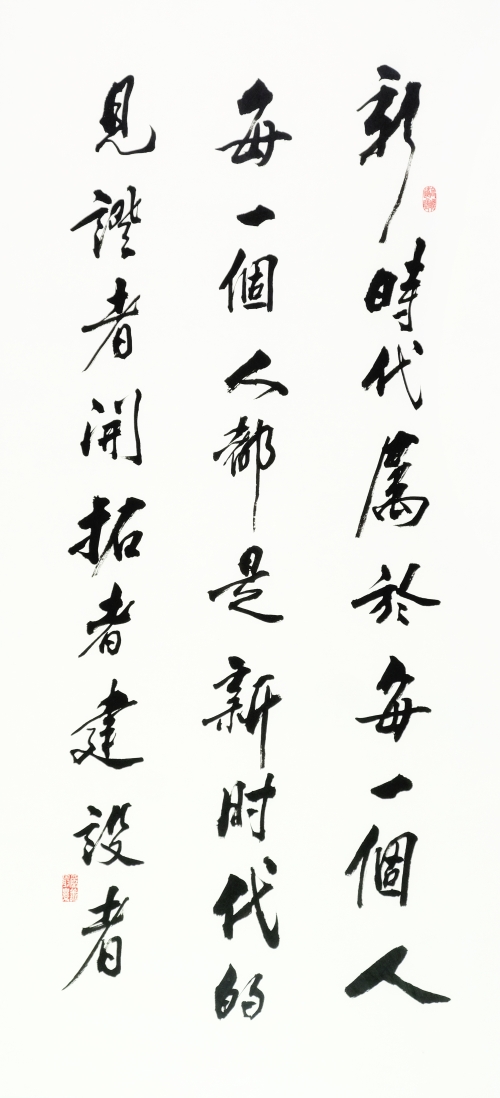 新時代屬於每一個人
每一個人都是新时代的
見證者開拓者建設者